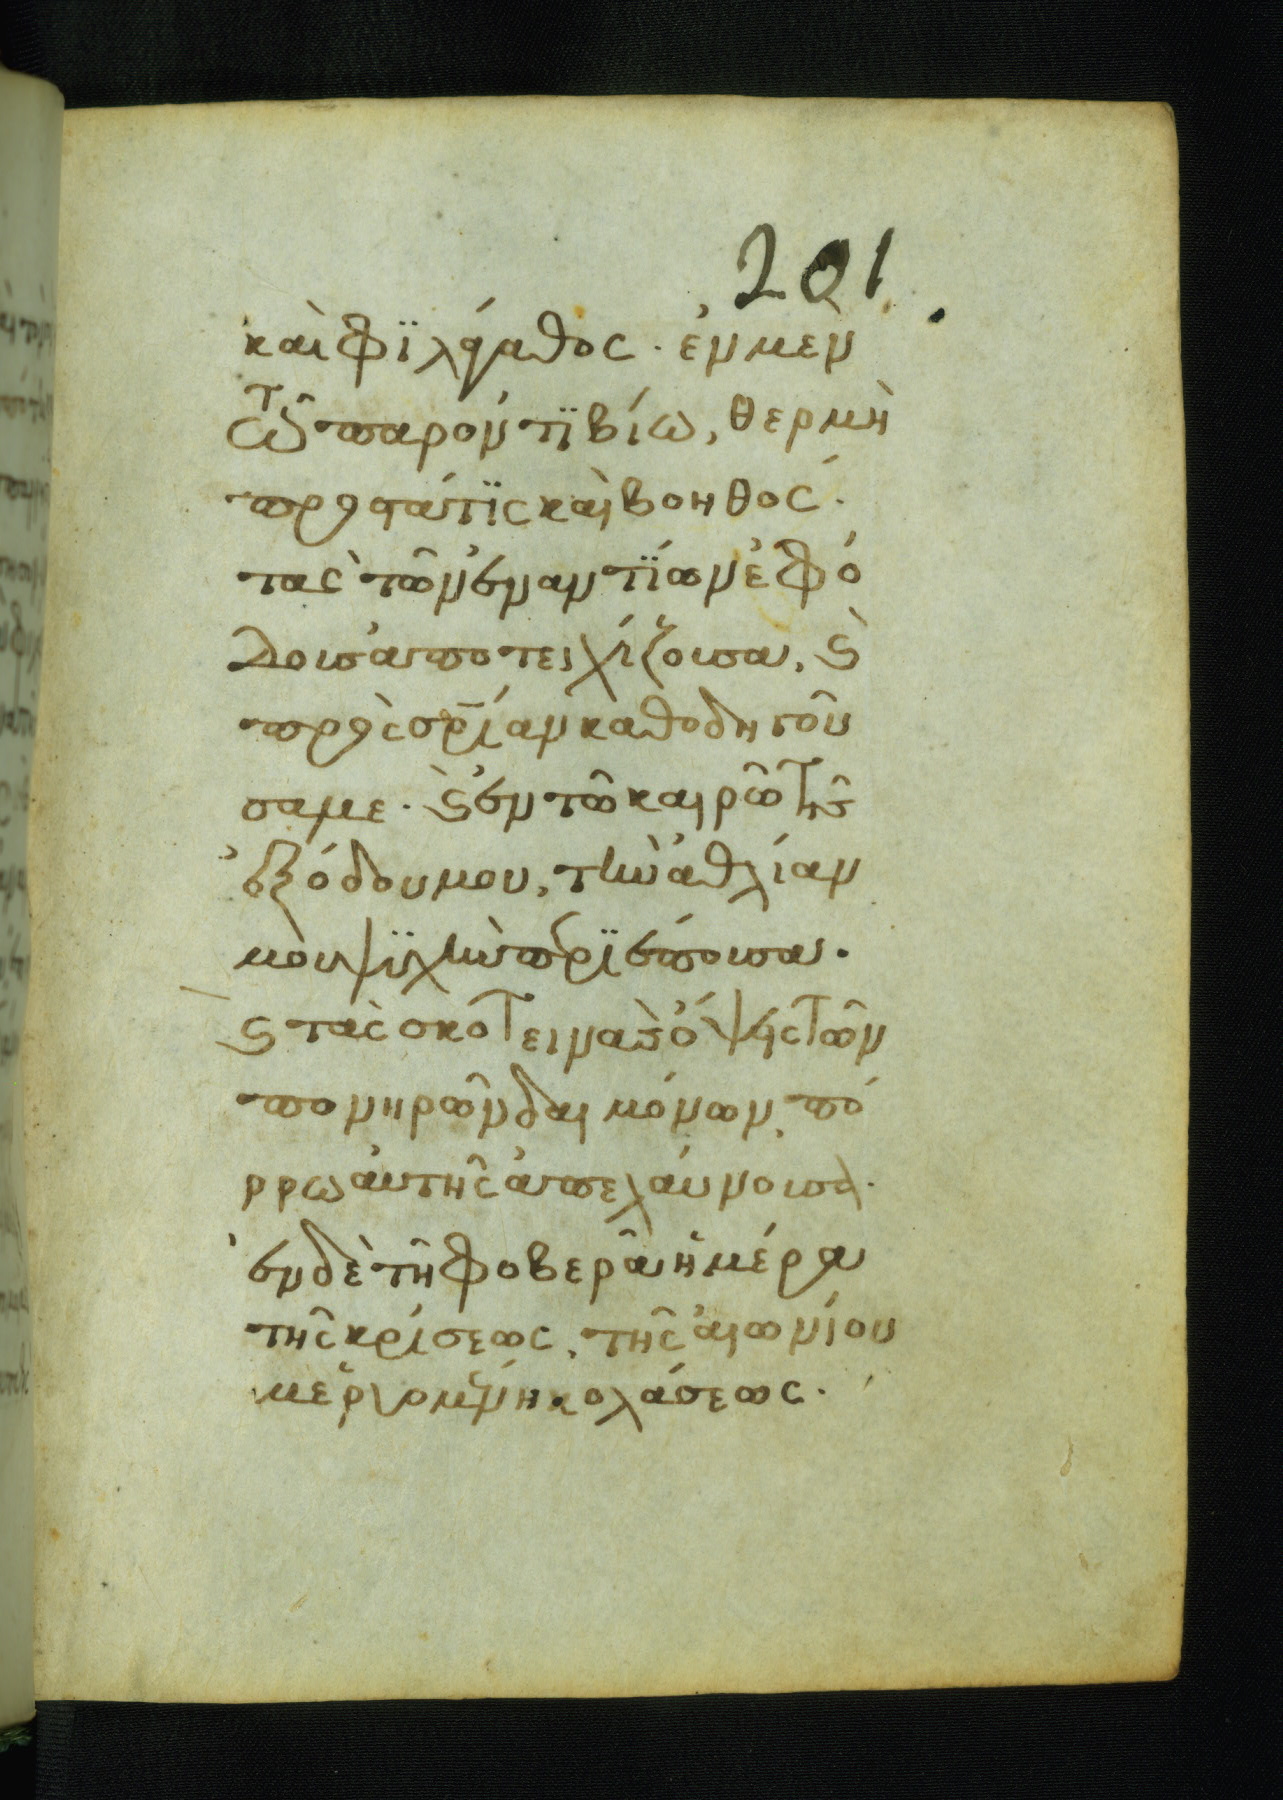 201
καὶ φϊλάγαθος. ἐν μὲν
τῶ παρόντϊ βίω, θερμὴ
προστάτϊς καὶ βοηθός.
τὰς τῶν ἐναντϊων ἐφό
δοισ ἀποτειχίζοισα, ϗ
πρὸς σρίαν καθοδηγοῦ
σα με. ϗ ἐν τῶ καιρῶ τῆς
ἐξόδου μου, τὴν ἀθλίαν
μου ψϋχὴν περϊέποισα.
ϗ τὰς σκοτεινὰς ὄψης τῶν
πονηρῶν δαιμόνων, πό
ρρω αὐτῆς ἀπελάυνοισα.
ἐν δὲ τῆ φοβερᾶ ἡμέρα
τῆς κρίσεως, τῆς αἰωνίου
με ῥυομένη κολάσεως.